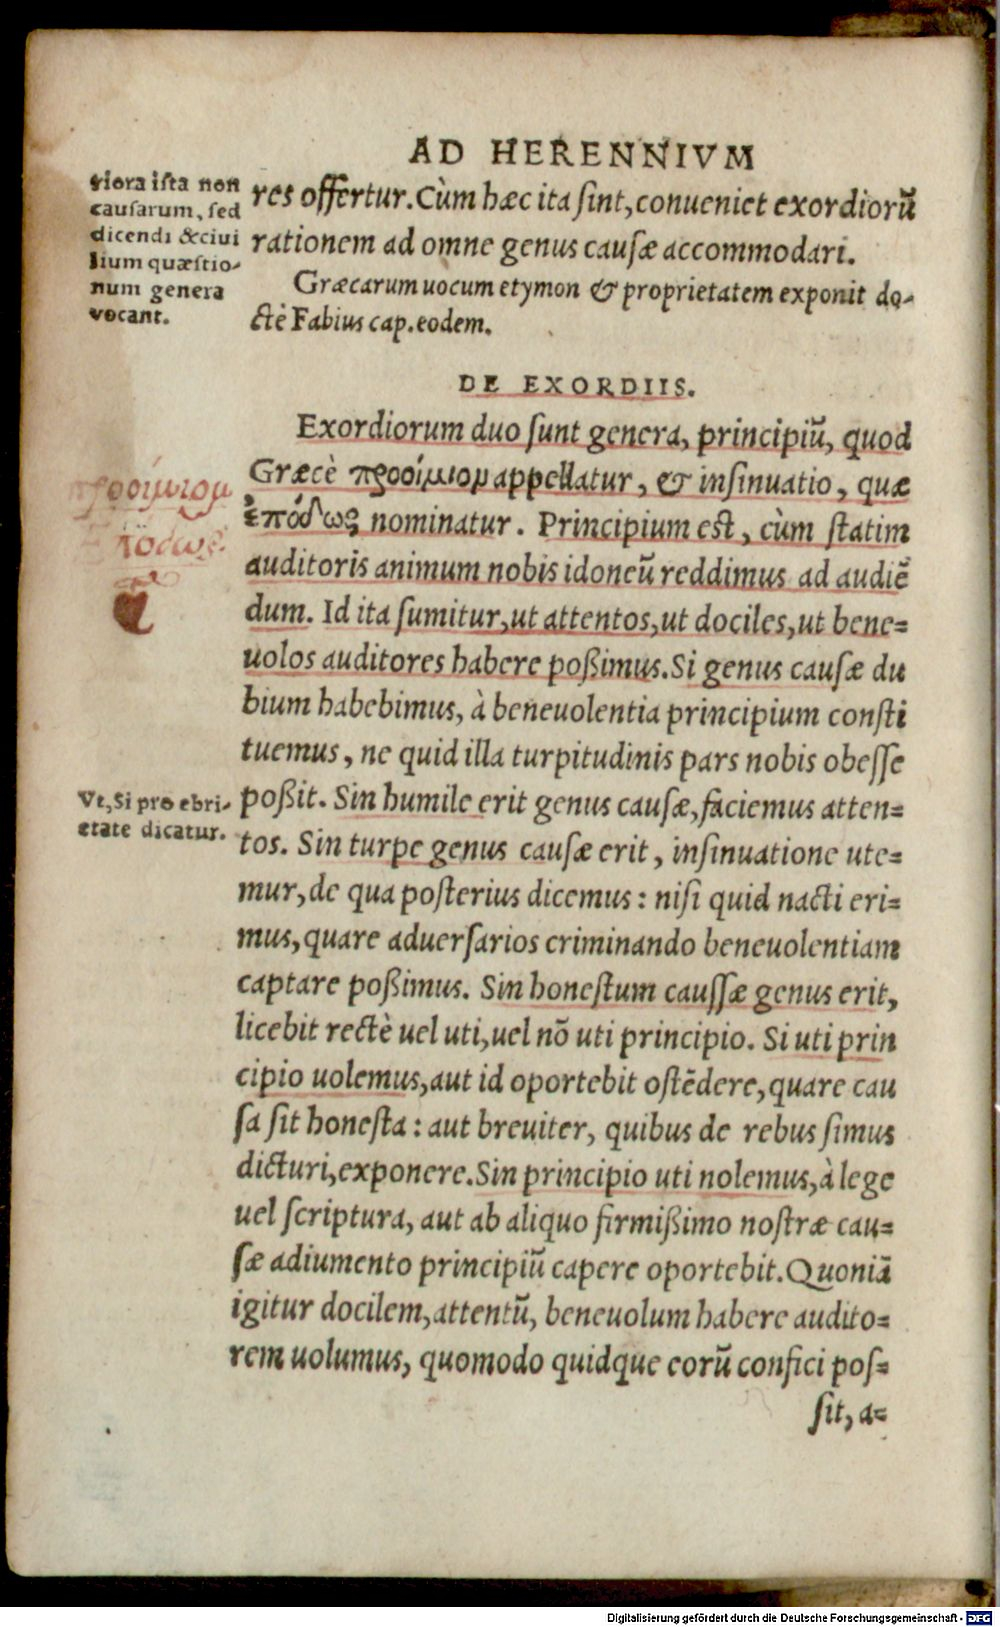 AD HERENNIVM
riora ista non
causarum, sed
dicendi &ciui
lium quæstio-
num genera
vocant.
res offertur. Cùm hæc ita sint, conueniet exordiorũ
rationem ad omne genus causæ accommodari.
Græcarum uocum etymon & proprietatem exponit do-
ctè Fabius cap. eodem.
DE EXORDIIS.
Exordiorum duo sunt genera, principiũ, quod
Græcè προοίμιομ appellatur, & insinuatio, quæ
ἐπόδως nominatur. Principium est, cùm statim
auditoris animum nobis idoneũ reddimus ad audiẽ
dum. Id ita sumitur, ut attentos, ut dociles, ut bene=
uolos auditores habere poßimus. Si genus causæ du
bium habebimus, à beneuolentia principium consti
tuemus, ne quid illa turpitudinis pars nobis obesse
poßit. Sin humile erit genus causæ, faciemus atten=
tos. Sin turpe genus causæ erit, insinuatione ute=
mur, de qua posterius dicemus: nisi quid nacti eri=
mus, quare aduersarios criminando beneuolentiam
captare poßimus. Sin honestum caussæ genus erit,
licebit rectè uel uti, uel nõ uti principio. Si uti prin
cipio uolemus, aut id oportebit ostẽdere, quare cau
sa sit honesta: aut breuiter, quibus de rebus simus
dicturi, exponere. Sin principio uti nolemus, à lege
uel scriptura, aut ab aliquo firmißimo nostræ cau=
sæ adiumento principiũ capere oportebit. Quoniã
igitur docilem, attentũ, beneuolum habere audito=
rem uolumus, quomodo quidque eorũ confici pos=
sit, a=
προοίμιομ
Vt, Si pro ebri-
etate dicatur.
Digitalisierung gefördert durch die Deutsche Forschungsgemeinschaft - DFG